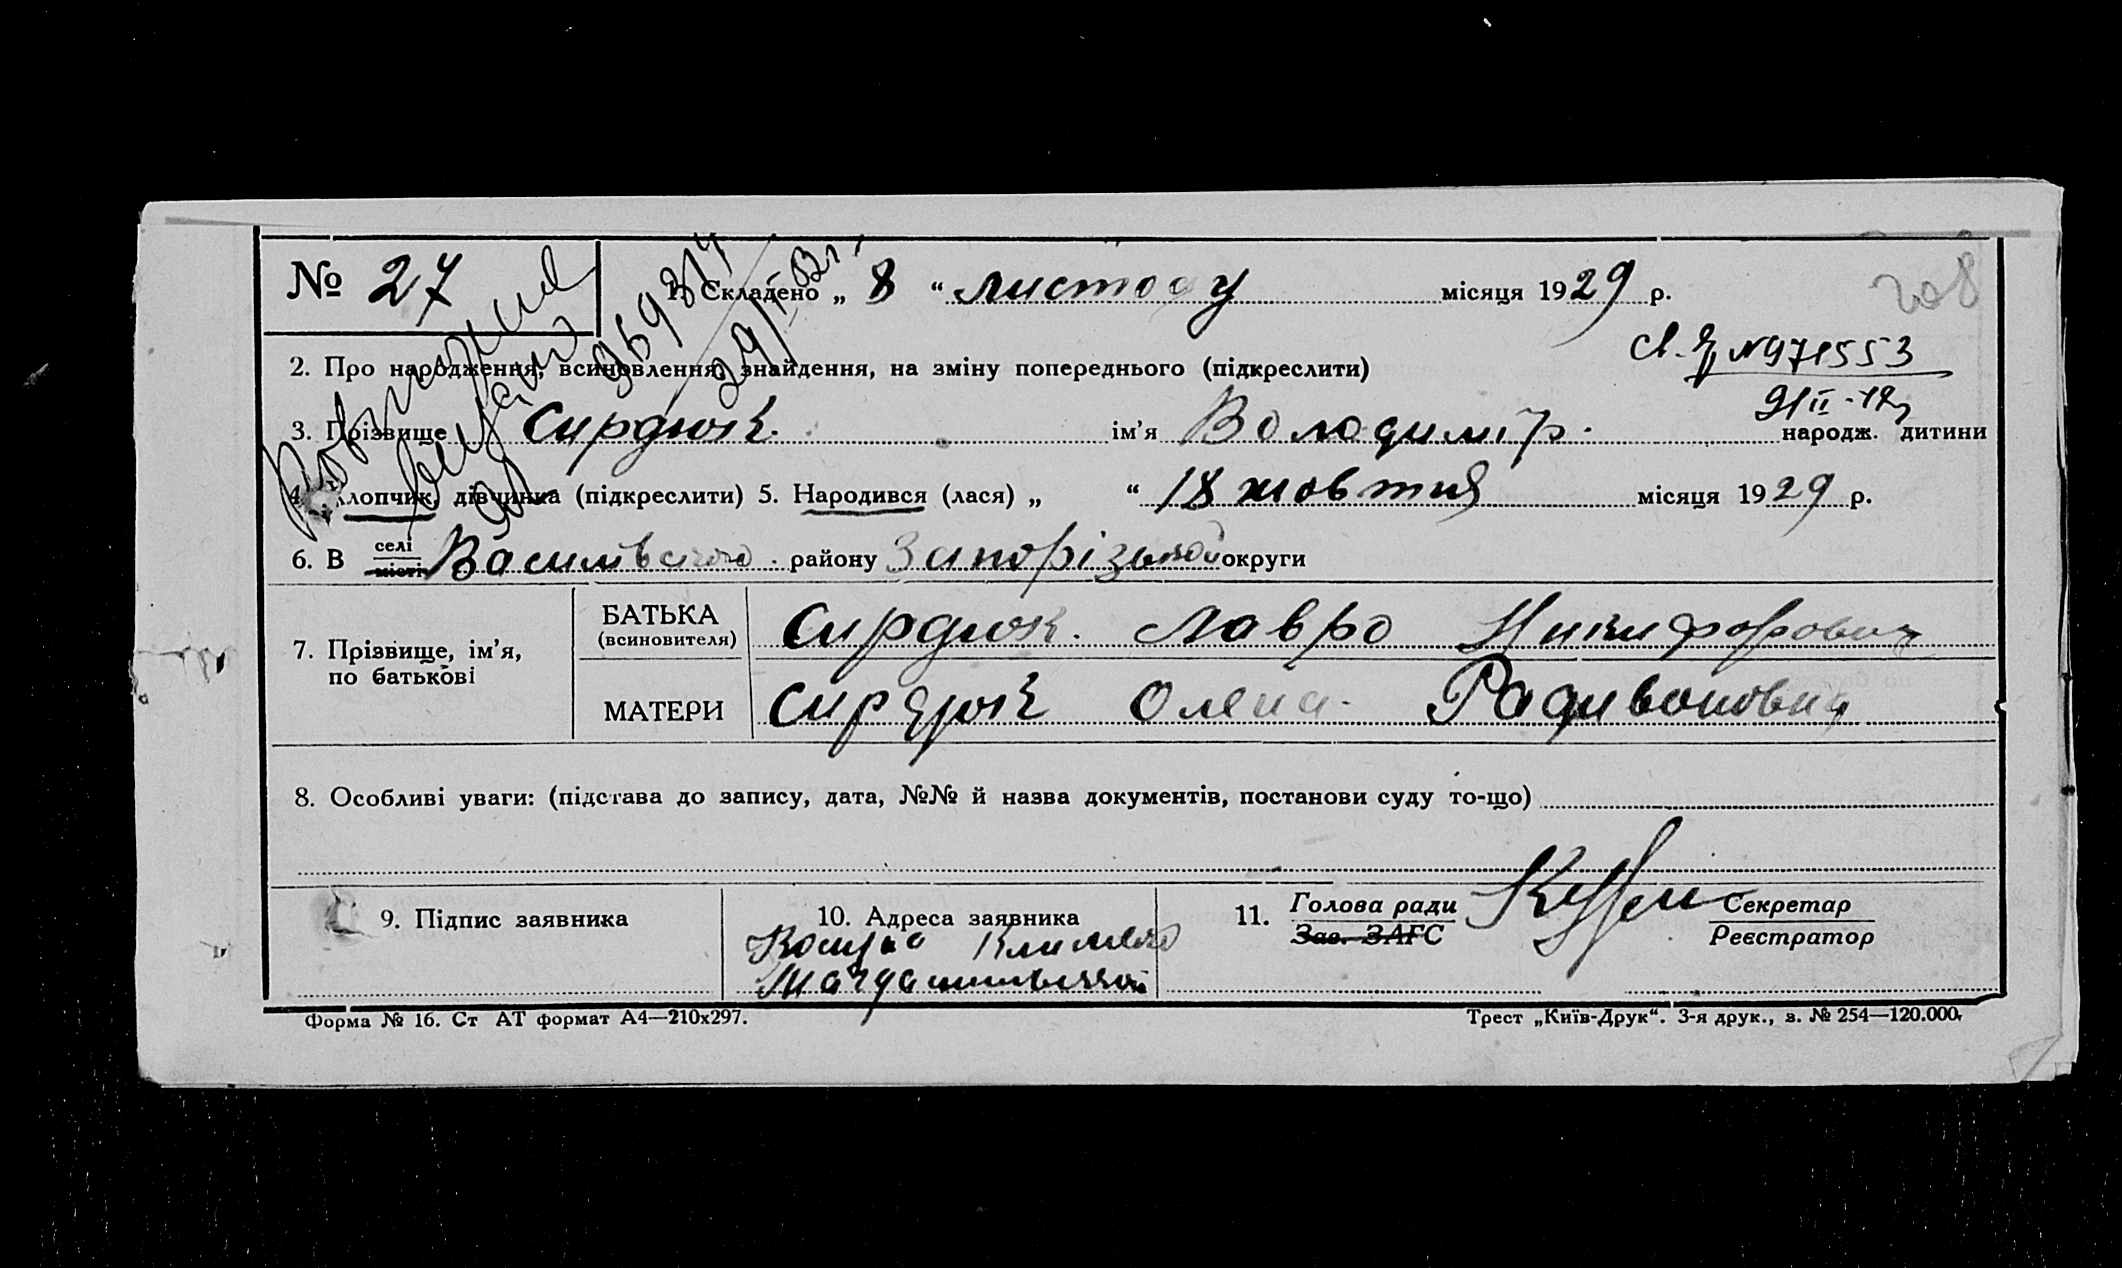 № 27
1. Складено „ 8 “ листопаду місяця 1929 р.
208
2. Про народження, всиновлення, знайдення, на зміну попереднього (підкреслити)
№971553
3. Прізвище Сирдюк. ім’я Володимір. народж. дитини
4. Хлопчик, дівчинка (підкреслити) 5. Народився (лася) „ “ 18 жовтня місяця 1929 р.
6. В селі місті Василівського району Запорізької округи
7. Прізвище, ім’я, по батькові
БАТЬКА (всиновителя) Сирдюк. Лавро Никифорович
МАТЕРИ Сирдюк Олена. Радивоновна
8. Особливі уваги: (підстава до запису, дата, №№ й назва документів, постанови суду то-що)
9. Підпис заявника
10. Адреса заявника
11. Голова ради Зав. ЗАГС
Секретар Реєстратор
Форма № 16. Ст АТ формат А4—210х297.
Трест „Київ-Друк“. 3-я друк., з. № 254—120.000.